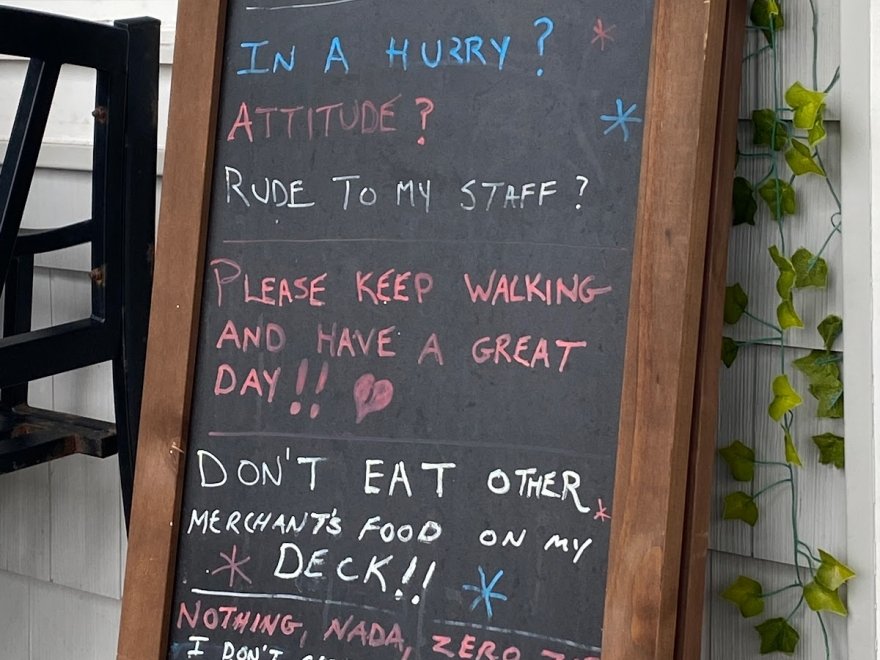 IN A HURRY?
ATTITUDE?
RUDE TO MY STAFF?
PLEASE KEEP WALKING
AND HAVE A GREAT
DAY!!
DON'T EAT OTHER
MERCHANT'S FOOD ON MY
DECK!!
NOTHING, NADA, ZERO
I DON'T